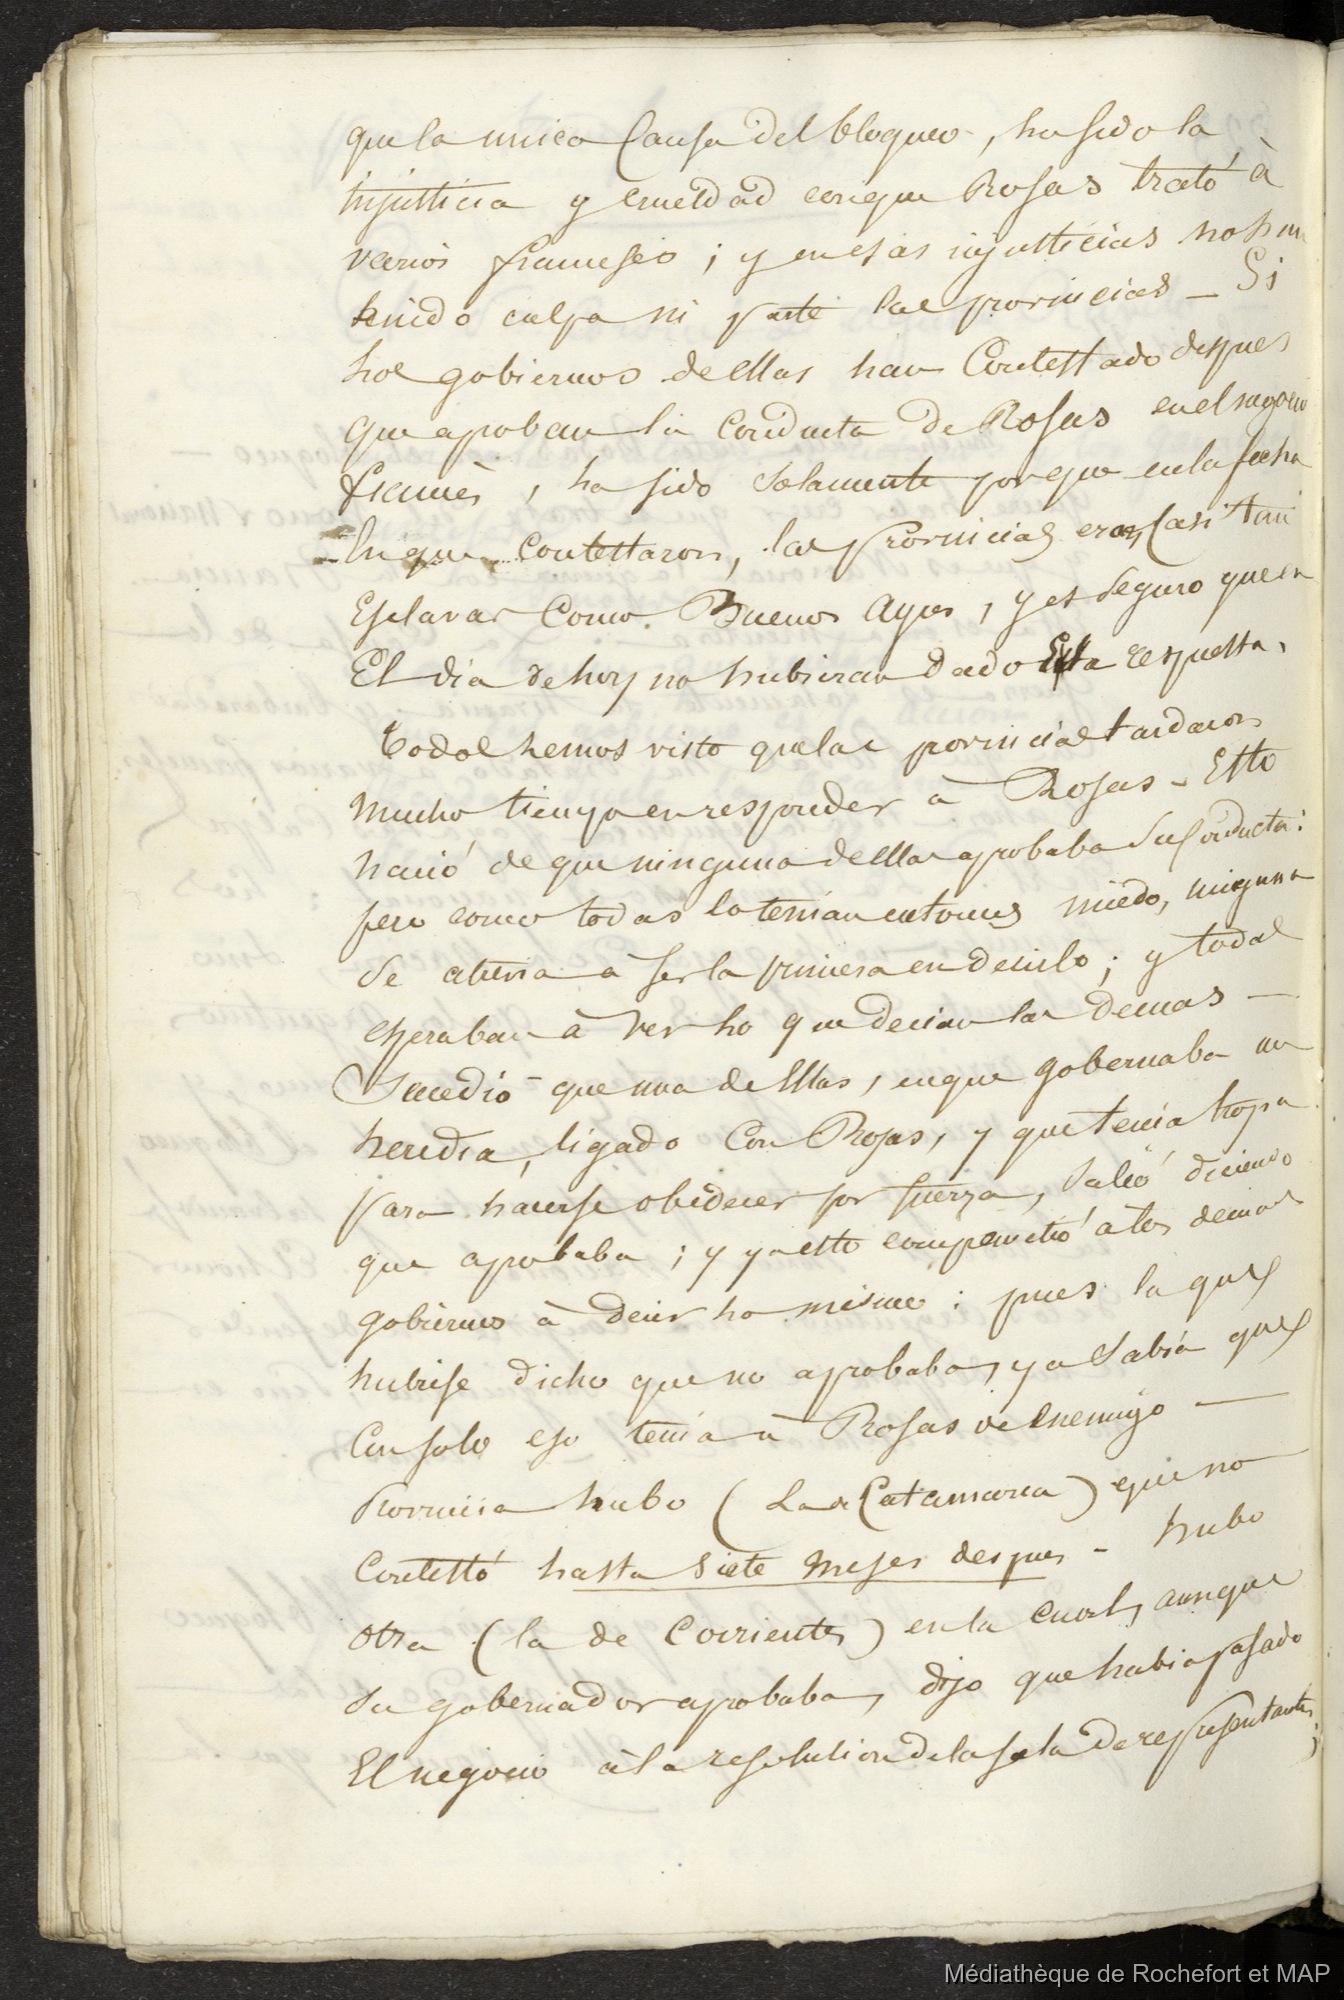 que la unica Causa del bloqueo, ha sido la
injusticia y crueldad con que Rosas trató à
varios franceses ; y en esas injusticias no han
tenido culpa ni parte las provincias _ Si
los gobiernos de ellas han Contestado despues
que aproban la conducta de Rosas en el negocio
francès, ha sido solamente porque en la fecha
en que contestaron, las Provincias eran casi tan
Esclavas Como Buenos Ayres, y es seguro que en
El dia de hoy no hubieran dado Esta respuesta.
Todos hemos visto que las provincias tardaron
mucho tiempo en responder à Rosas - Esto
nació de que ninguna de ellas aprobaba su Conducta:
pero como todas lo tenian entonces miedo, ninguna
se atrevia à ser la primera en decirlo ; y todas
esperaban à ver lo que decian las demas —
Sucedió que una de Ellas, en que gobernaba un
heredia, ligado Con Rosas, y que tenia tropa
para hacerse obedecer por fuerza, salió diciendo
que aprobaba ; y ya esto comprometió à los demas
gobiernos à decir lo mismo : pues la que
hubiese dicho que no aprobaba, ya sabia que
Con solo eso tenia à Rosas de Enemigo —
Provincia hubo (La de Catamarca) que no
Contestó hasta siete meses despues - hubo
otra (la de Corrientes) en la cual, aunque
su gobernador aprobaba, dijo que habia pasado
El negocio à la resolution de la sala de representantes;
Médiathèque de Rochefort et MAP